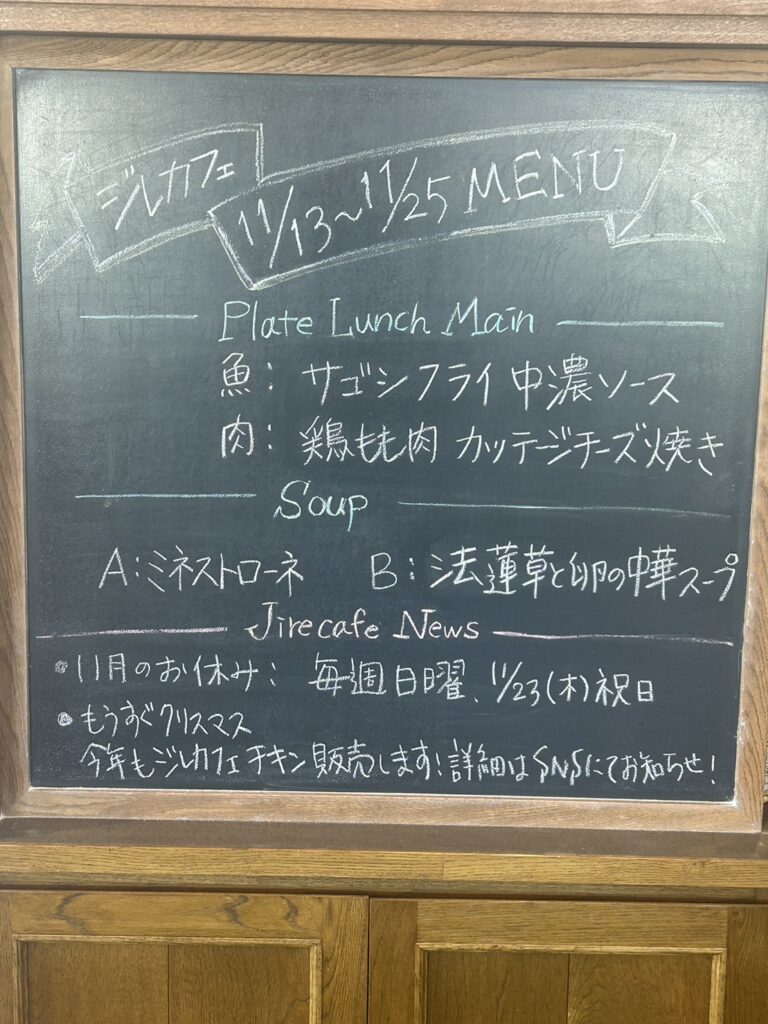 ジルカフェ
11/13〜11/25 MENU
Plate Lunch Main
魚： サゴシフライ 中濃ソース
肉： 鶏もも肉 カッテージチーズ焼き
Soup
A：ミネストローネ B：法蓮草と卵の中華スープ
Jirecafe News
●11月のお休み： 毎週日曜、11/23(木)祝日
●もうすぐクリスマス
今年もジルカフェチキン販売します！詳細はSNSにてお知らせ！